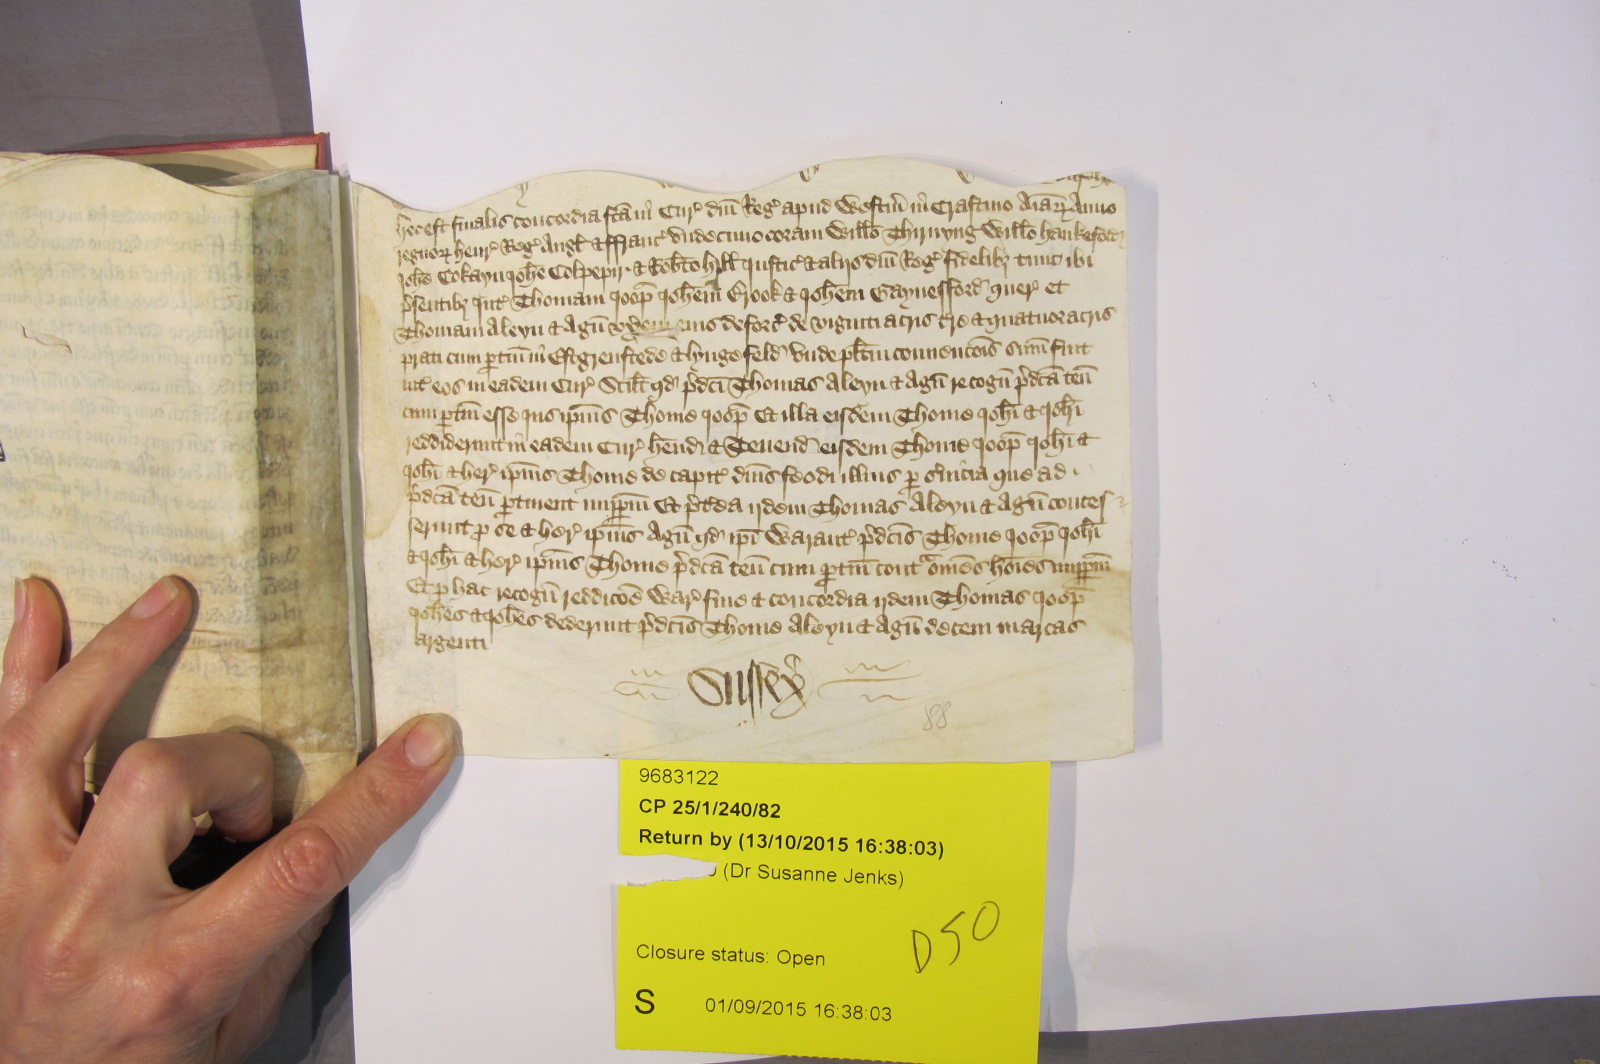 Hec est finalis concordia fcā in Cur' dn̄i Reg' apud Westm̄ in Crastino Aīaȝ Anno
regnoȝ henr' Reg' Angł & ffranc' duodecimo coram Wiłło Thirnyng Wiłło hankeford
Johe Cokayn Johe Colpepir & Rob̄to hyłł Justic' & aliis dn̄i Reg' fidelibȝ tunc ibi
p̄sentibȝ Int' Thomam Joop̄ Joh̄em Crook & Joh̄em Gaynesford quer' et
Thomam Aleyn & Agn̄ vx̄em eius deforc' de viginti acris tr̄e & quatuor acris
prati cum ptin̄ in Estgrenstede & lyngefeld Vnde pl̄itm conuencōis sum̄ fuit
int' eos in eadem Cur' Scilt qd p̄dc̄i Thomas Aleyn & Agn̄ recogn̄ p̄dcā ten̄
cum ptin̄ esse Jus ip̄ius Thome Joop̄ Et illa eisdem Thome Joh̄i & Joh̄i
reddiderunt in eadem Cur' hend̄i & Tenend eisdem Thome Joop̄ Joh̄i &
Joh̄i & her' ip̄ius Thome de capit' dn̄is feodi illius p s̄uicia que ad
p̄dcā ten̄ ptinent imppm̄ Et p̄t̄ea ijdem Thomas Aleyn & Agn̄ conces
serunt p se & her' ip̄ius Agn̄ qd ip̄i Warant' p̄dc̄is Thome Joop̄ Joh̄i
& Joh̄i & her' ip̄ius Thome p̄dcā ten̄ cum ptin̄ contª om̄es hōies imppm̄
Et p hac recogn̄ reddicōe War' fine & concordia ijdem Thomas Joop̄
Joh̄es & Joh̄es dederunt p̄dc̄is Thome Aleyn & Agn̄ decem marcas
argenti
Sussex̄
88
9683122
CP 25/1/240/82
Return by (13/10/2015 16:38:03)
(Dr Susanne Jenks)
D50
Closure status: Open
S 01/09/2015 16:38:03